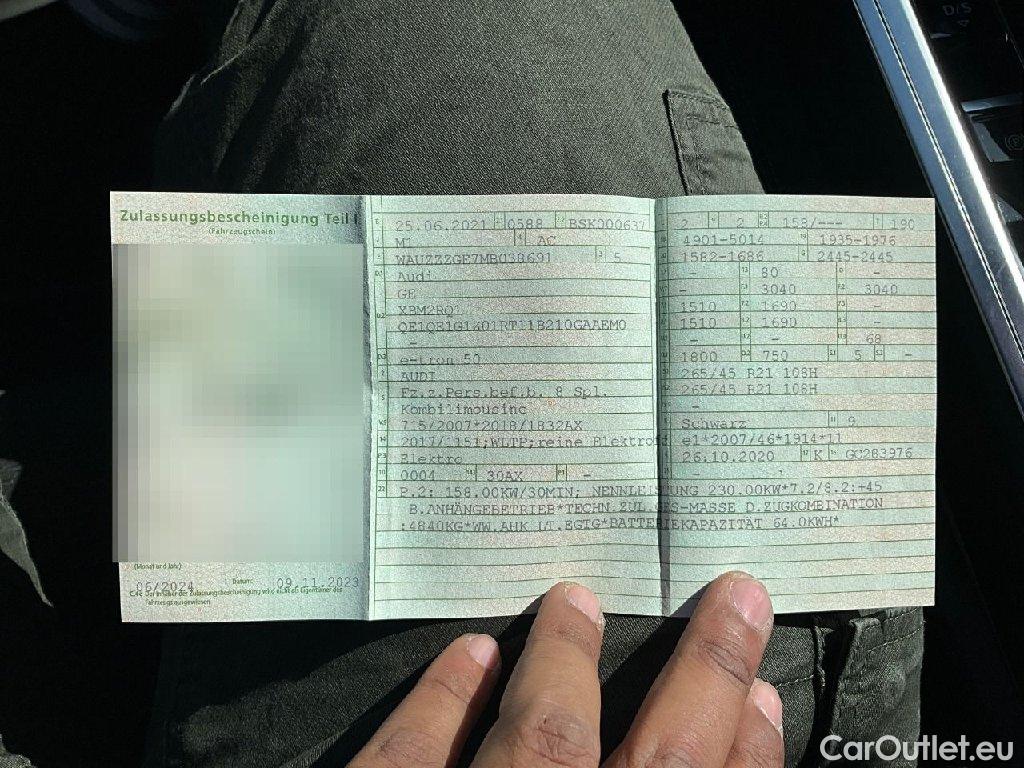 D/S
Zulassungsbescheinigung Teil I
(Fahrzeugschein)
25.06.2021 0588
M1 AC
5
Audi
GE
e-tron 50
AUDI
Fz.z.Pers.bef.b. 8 Spl.
Kombilimousine
715/2007*2018/1832AX
2017/1151;WLTP;reine Elektrofz
Elektro
0004 30AX -
2 2 158/--- 190
4901-5014 1935-1976
1582-1686 2445-2445
- 80 -
- 3040 3040
1510 1690 -
1510 1690 -
- - 68
1800 750 5 -
265/45 R21 108H
265/45 R21 108H
-
Schwarz 9
e1*2007/46*1914*11
26.10.2020 K
P.2: 158.00KW/30MIN; NENNLEISTUNG 230.00KW*7.2/8.2:+45
B.ANHÄNGEBETRIEB*TECHN.ZUL.GES-MASSE D.ZUGKOMBINATION
:4840KG*WW.AHK LT.EGTG*BATTERIEKAPAZITÄT 64.0KWH*
(Monat und Jahr)
06/2024 Datum: 09.11.2023
C.4c Der Inhaber der Zulassungsbescheinigung wird nicht als Eigentümer des
Fahrzeugs ausgewiesen.
CarOutlet.eu